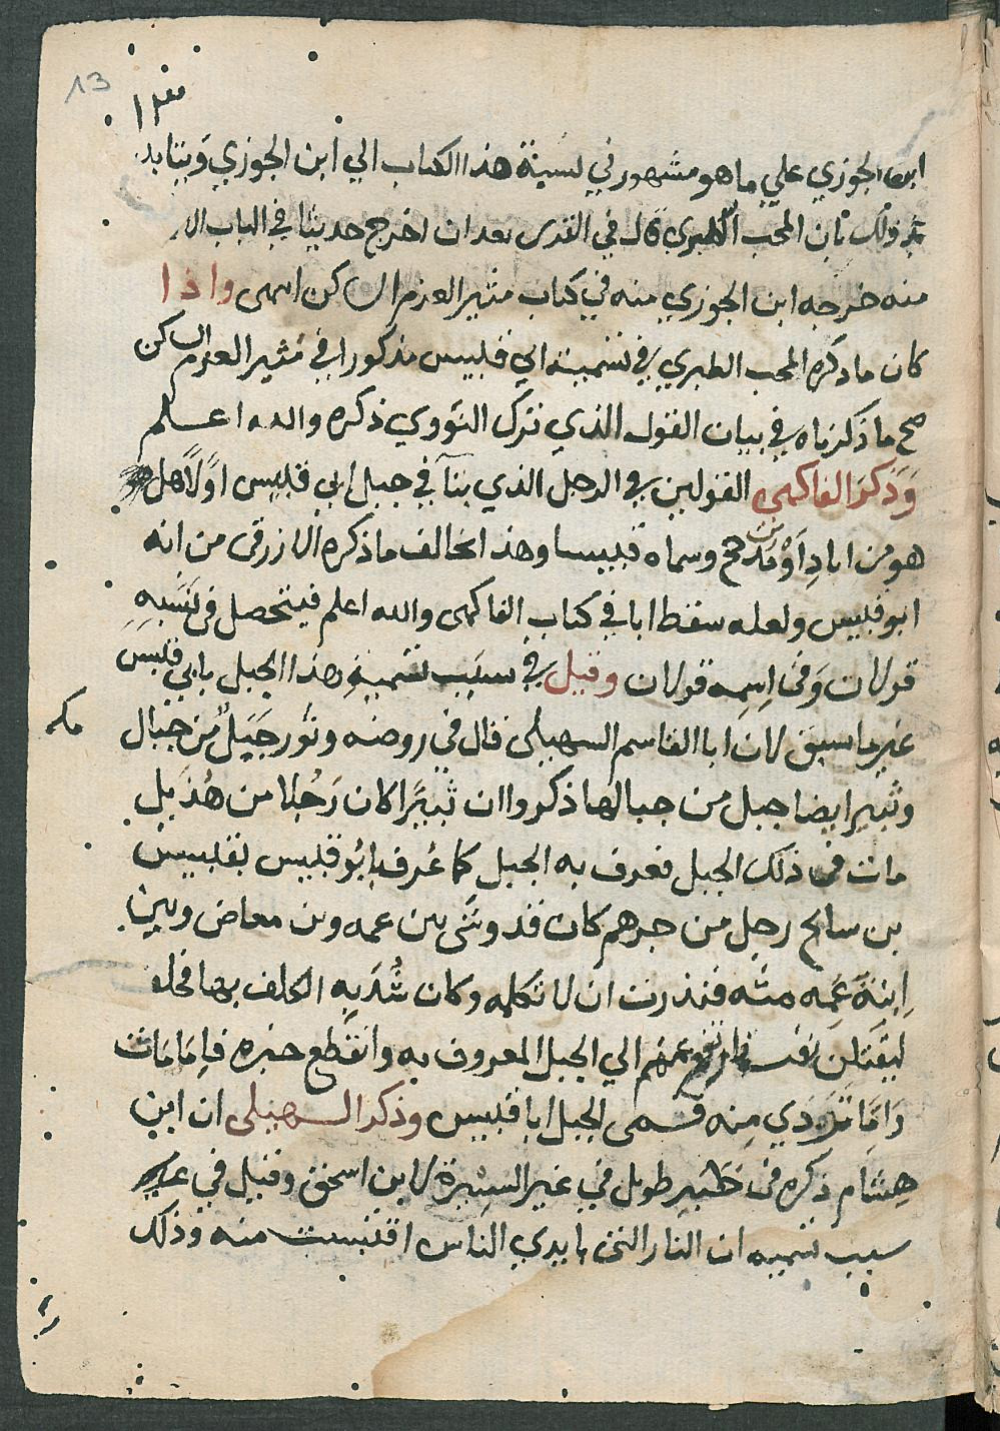 13
ابن الجوزي علي ما هو مشهور في نسبة هذا الكتاب الي ابن الجوزي ويتايد
ذلك بان المحب الطبري قال في القرى بعد ان اخرج حديثا في الباب
منه خرجه ابن الجوزي منه في كتاب مثير العزم الساكن انتهى واذا
كان ما ذكره المحب الطبري في تسمية ابي قبيس مذكورا في مثير العزم الساكن
صح ما ذكرناه في بيان القول الذي ترك النووي ذكره والله اعلم
وَذكرَ الفاكهى القولين في الرجل الذي بنآ في جبل ابي قبيس اوّلاً هل
هو من ايادٍ اَوْ من مذحج وسماه قبيسا وهذا يخالف ما ذكره الازرقى من انه
ابو قبيس ولعله سقط ابا في كتاب الفاكهى والله اعلم فيتحصل في نَسَبِهِ
قولان وَفى اِسمِه قولان وقيل في سبَب تسميةِ هذا الجبل بابي قبيس
غير ما سبق لان ابا القاسم السهيلى قال في روضه وثور جَبَلٌ من جبال مكه
وثبير ايضا جبل من جبالها ذكروا ان ثبيرًا كان رَجُلا من هُذَيلٍ
مات فى ذلك الجبل فعرف به الجبل كما عُرف ابُو قبيس بقبيس
بن سالح رجل من جرهم كان قد وشَى بين عمرو بن مضاض وبين
اِبنَةَ عَمِه ميَّه فنذرت ان لا تكلمه وكان شُدَ بِه الكلف بها فحلف
ليقتلن قبيسا فهرب منهم الي الجبل المعروف به وانقطع خبره فاِمَا مَات
وَامَا تردَي مِنه فسمى الجبل ابا قبيس وذكر السهيلى ان ابن
هِشام ذكره فى خَبَرٍ طويل في غير السيرة لابن اسحق وقيل في
سبب تسميه ان النار التى بايدي الناس اقتبست منه وذلك